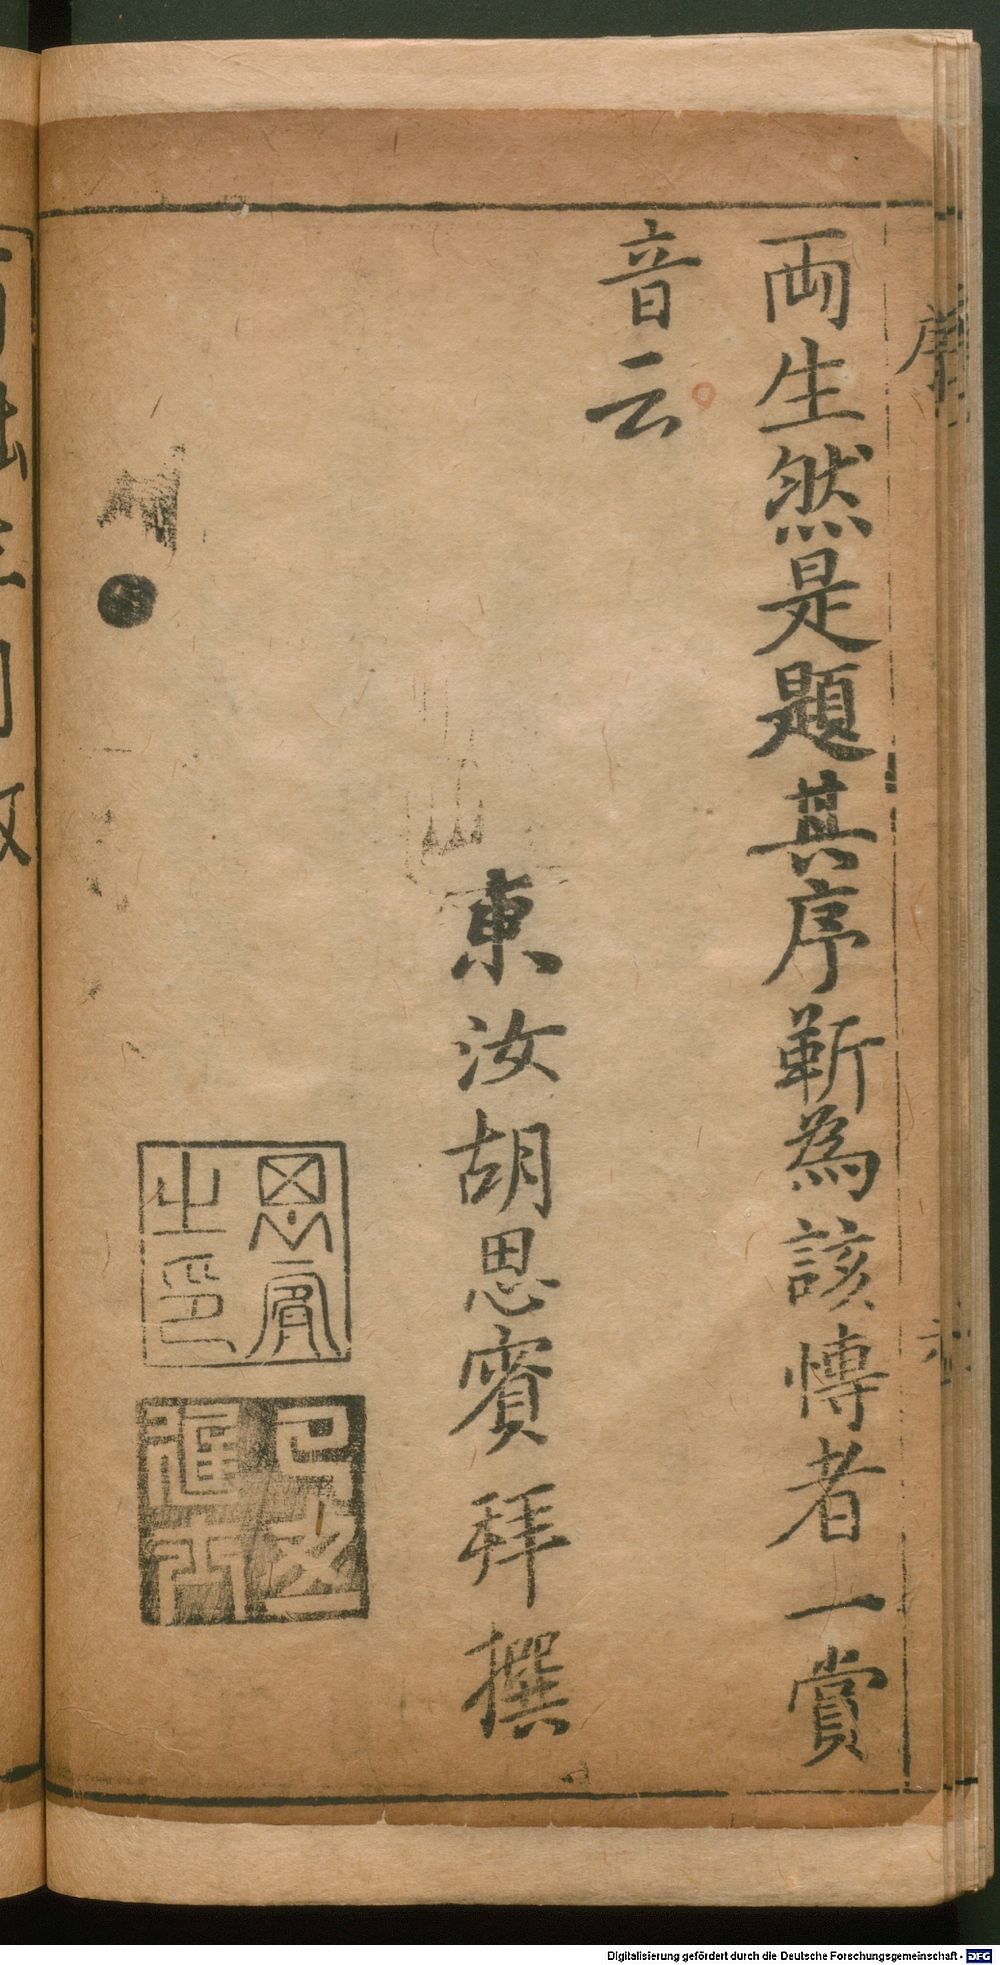 両生然是題其序靳為該慱者一賞
音云
東汝胡思賓拜撰
思賓之印
序
Digitalisierung gefördert durch die Deutsche Forschungsgemeinschaft - DFG